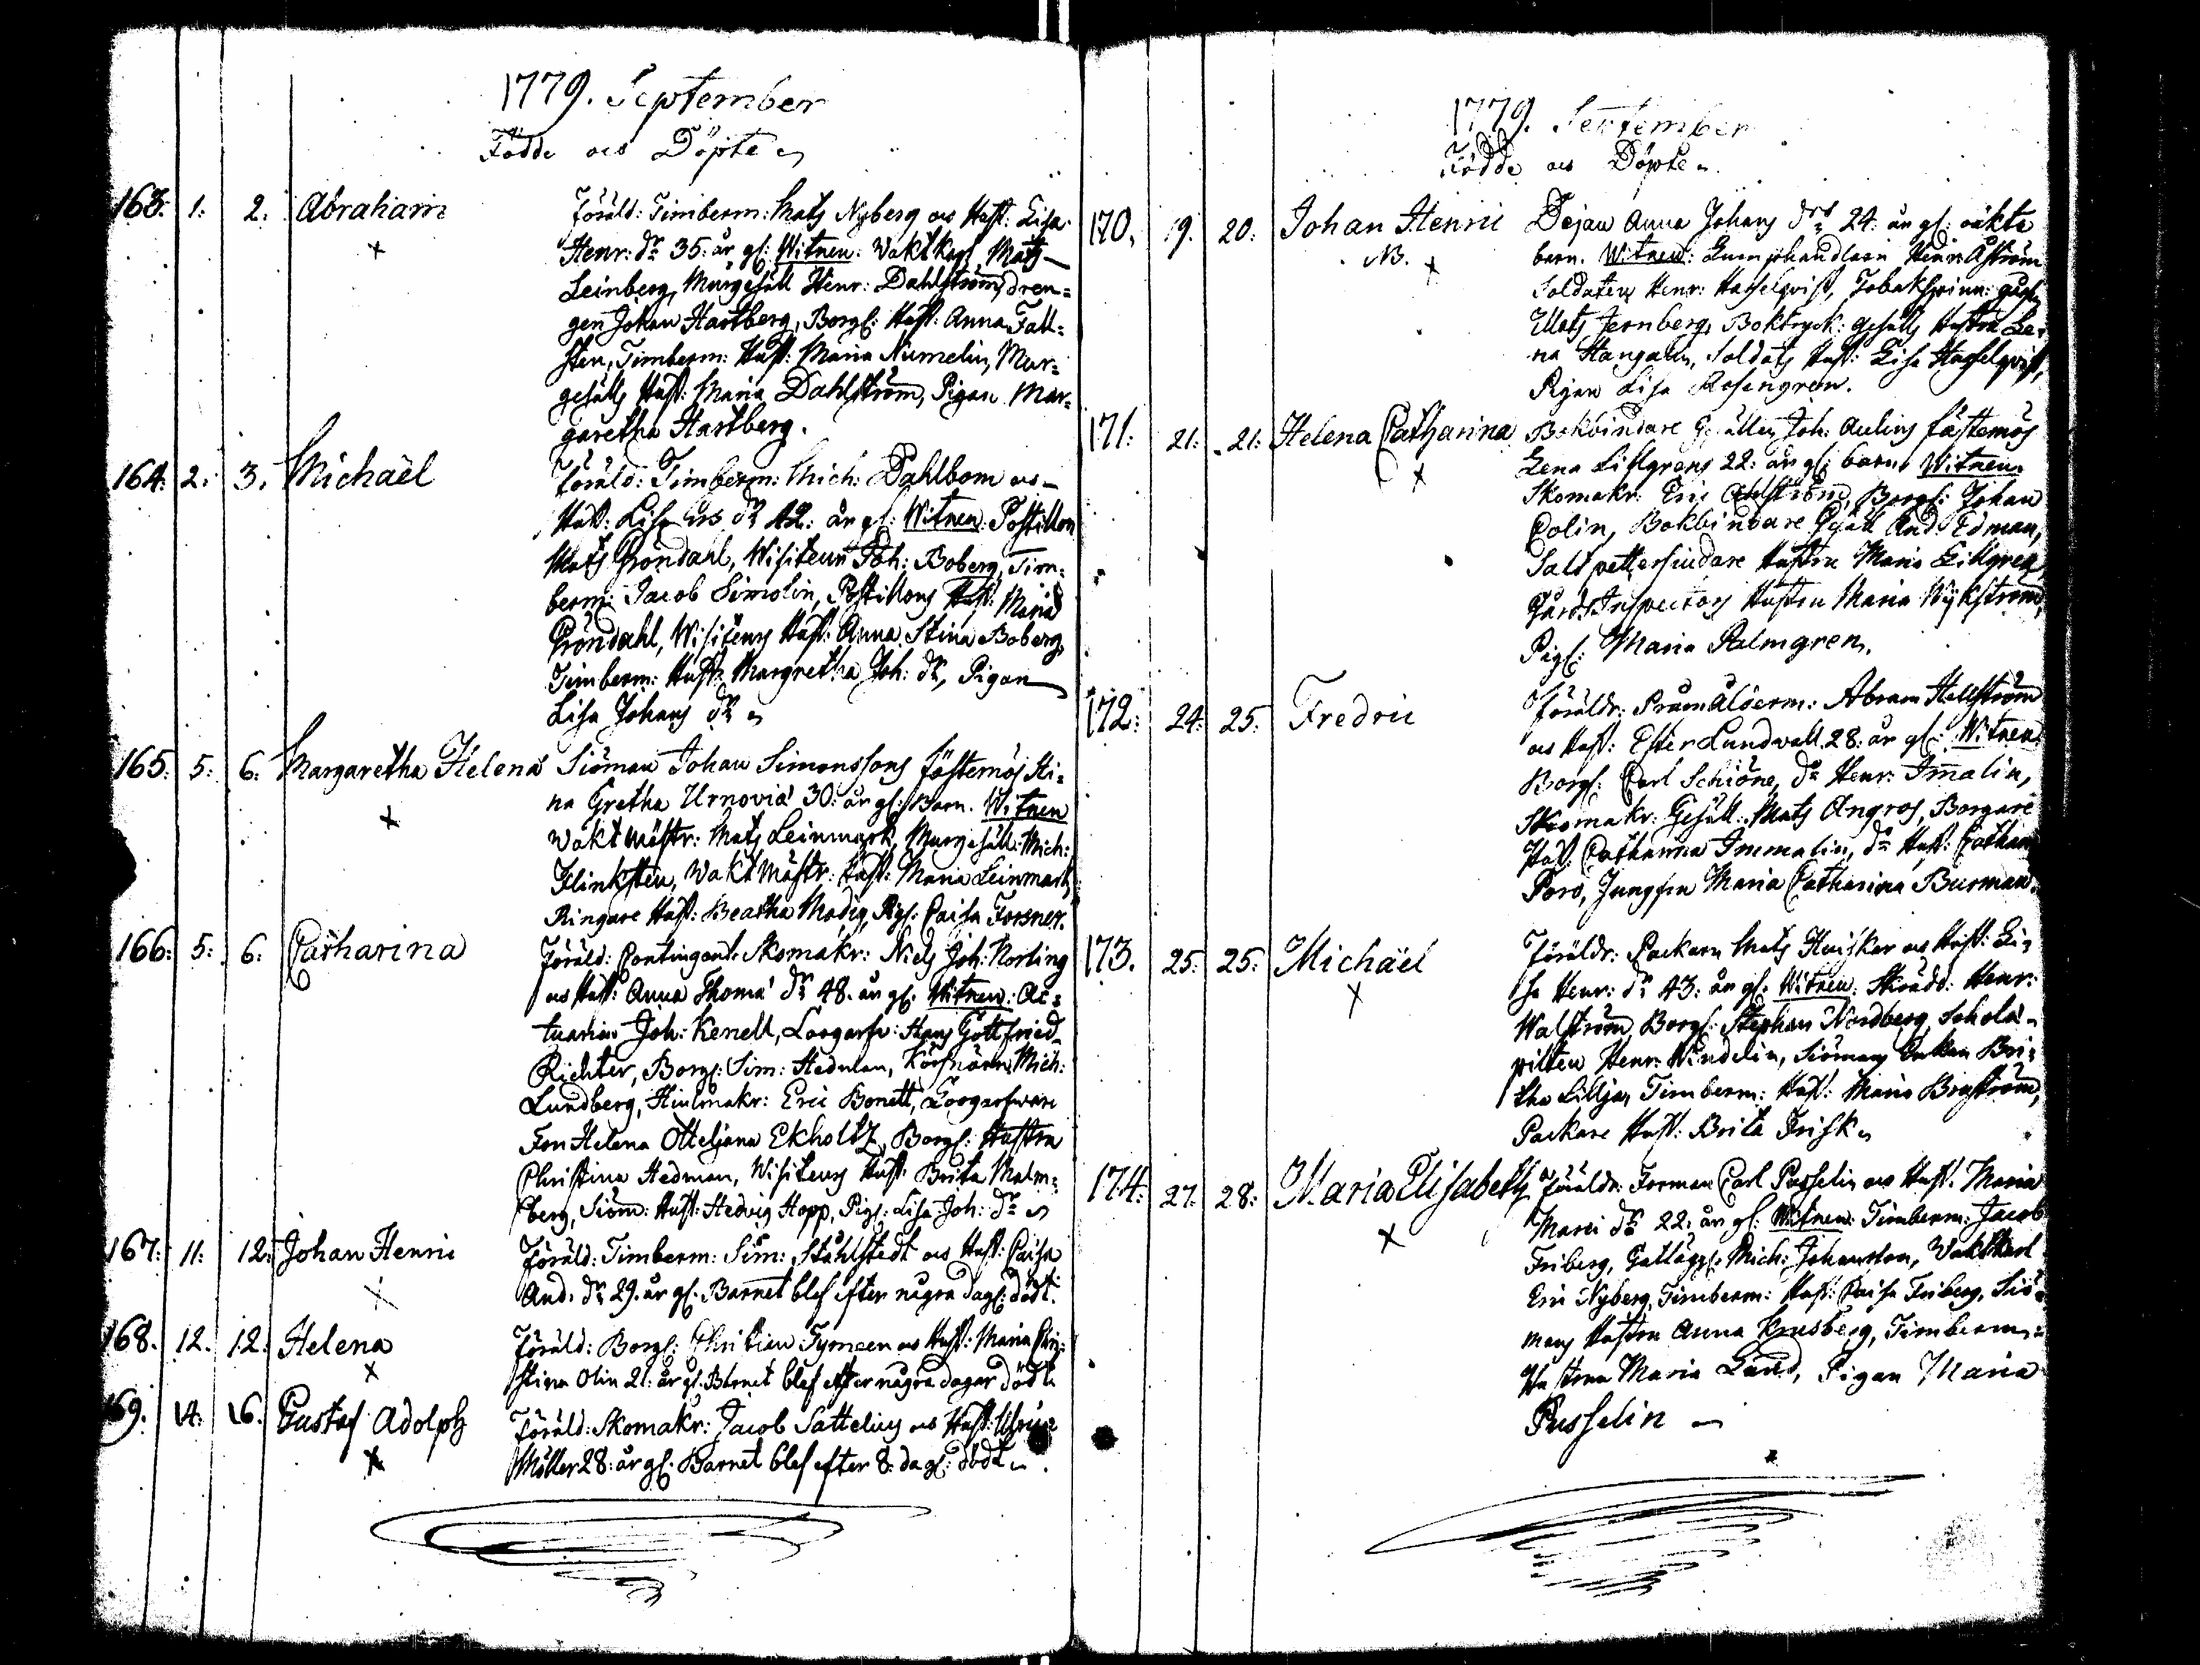 1779. September
Födde och Döpte
163. 1. 2. Abraham Föräld: Timberm: Mats Nyberg och Hust: Lisa
Henr: dr 35: år gl: Witnen: Vaktkarl Mats
Leinberg, Murgesäll Henr: Dahlström, dren=
gen Johan Hartberg, Borgs: Hust: Anna Fall=
sten, Timberm: Hust: Maria Numelin, Mur=
gesälls Hust: Maria Dahlström, Pigan Mar=
garetha Hartberg.
164. 2. 3. Michaël Föräld: Timberm: Mich: Dahlbom och
Hust: Lisa Ers dr 42: år gl: Witnen: Postillon
Mats Gröndahl, Wisiteur Joh: Boberg, Tim=
berm: Jacob Simolin, Postillons Hust: Maria
Gröndahl, Wisiteurs Hust: Anna Stina Boberg,
Timberm: Hust: Margretha Joh: dr, Pigan
Lisa Johans dr
165. 5. 6. Margaretha Helena Siöman Johan Simonssons fästemös Sti=
na Gretha Urnovia 30: år gl: Barn. Witnen
Vaktmästr: Mats Leinmark, Murgesäll: Mich:
Flinksten, Vaktmästr: Hust: Maria Leinmark,
Ringare Hust: Beatha Modig, Pigs: Caisa Forsner.
166. 5. 6. Catharina Föräld: Contingent Skomakr: Niels Joh: Norling
och Hust: Anna Thoma dr 48. år gl. Witnen: Ac=
tuarien Joh: Kenell, Loogarfv: Hans Gottfried
Richter, Borgs: Sim: Hedman, Mich:
Lundberg, Hiulmakr: Eric Bonett, Loogarfvare
Fru Helena Otteliana Ekholtz, Borgs: Hustru
Christina Hedman, Wisiteurs Hust: Brita Malm=
berg, Siöm: Hust: Hedvig Hopp, Pigs: Lisa Joh: dr
167. 11. 12. Johan Henric Föräld: Timberm: Sim: Ståhlstedt och Hust: Caisa
And: dr 29. år gl. Barnet blef efter några dags: dödt.
168. 12. 12. Helena Föräld: Borgs: Christian Tymeen och Hust: Maria Chri=
stina Olin 21: år gl. Barnet blef efter några dagar dödt
169. 14. 16. Gustaf Adolph Föräld: Skomakr: Jacob Sattelius och Hust: Ulrica
Möller 28: år gl. Barnet blef efter 8: dags: dödt
1779. September
Födde och Döpte
170. 19. 20. Johan Henric NB. Dejan Anna Johans drs 24: år gl: oäkta
barn. Witnen: Henr: Åström
Soldaten Henr: Hasselqvist, Tobakspinn:
Mats Jernberg, Boktryck: gesälls Hustru Le=
na Hangalin, Soldats Hust: Lisa Hasselqvist,
Pigan Lisa Rosengren.
171. 21. 21. Helena Catharina Bokbindare Gesällen Joh: Aulins fästemös
Lena Lillgrens 22: år gl: barn. Witnen
Skomakr: Eric Ahlström, Borgs: Johan
Colin, Bokbindare Gesäll And: Edman,
Saltpettersiudare Hustru Maria Lillgren
Gårds Inspectors Hustru Maria Wykström,
Pigs: Maria Palmgren.
172. 24. 25. Fredric Föräldr: Pråm Ålderm: Abram Hellström
och Hust: Ester Lundwall 28: år gl: Witnen
Borgs: Carl Schiöne, do Henr: Imalin,
Skomakr: Gesäll: Mats Angros, Borgare
Hust: Catharina Immalin, do Hust: Cathar
Pero, Jungfru Maria Catharina Burman.
173. 25. 25. Michaël Föräldr: Packarn Mats Huisker och Hust: Li=
sa Henr: dr 43: år gl. Witnen: Skrädd: Henr:
Walström, Borgs: Stephan Nordberg, Schola
pilten Henr: Windelin, Siömans Enkan Bri=
tha Lillja, Timberm: Hust: Maria Broström,
Packare Hust: Brita Frisk
174. 27. 28. Maria Elisabeth Föräldr: Forman Carl Pusselin och Hust: Maria
Marci dr 22: år gl: Witnen: Timberm: Jacob
Friberg, Mich: Johansson, Vaktkarl
Eric Nyberg, Timberm: Hust: Caisa Friberg, Siö=
mans Hustru Anna Krusberg, Timberm:
Hustru Maria Lund, Pigan Maria
Pusselin